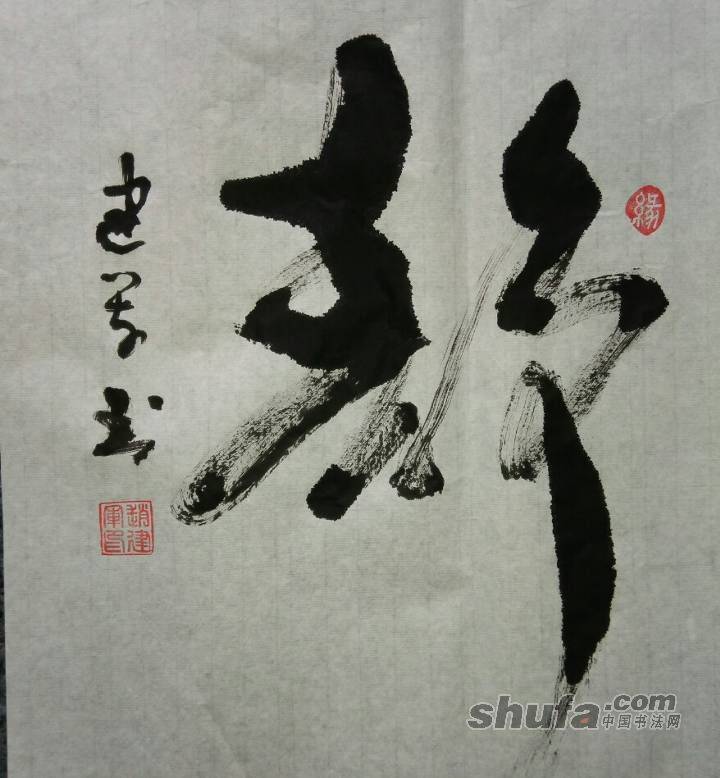 静
緣
建军书
趙建軍印
shufa.com
中国书法网